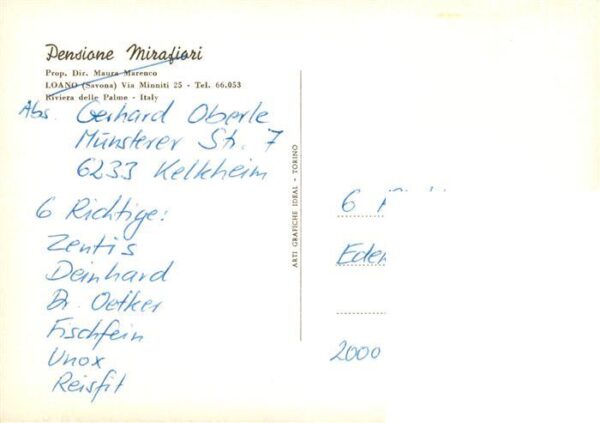 Pensione Mirafiori
Prop. Dir. Maura Marenco
LOANO (Savona) Via Minniti 25 - Tel. 66.053
Riviera delle Palme - Italy
Abs. Gerhard Oberle
Münsterer Str. 7
6233 Kelkheim
6 Richtige:
Zentis
Deinhard
Dr. Oetker
Fischfein
Unox
Reisfit
ARTI GRAFICHE IDEAL - TORINO
6
Eden
2000